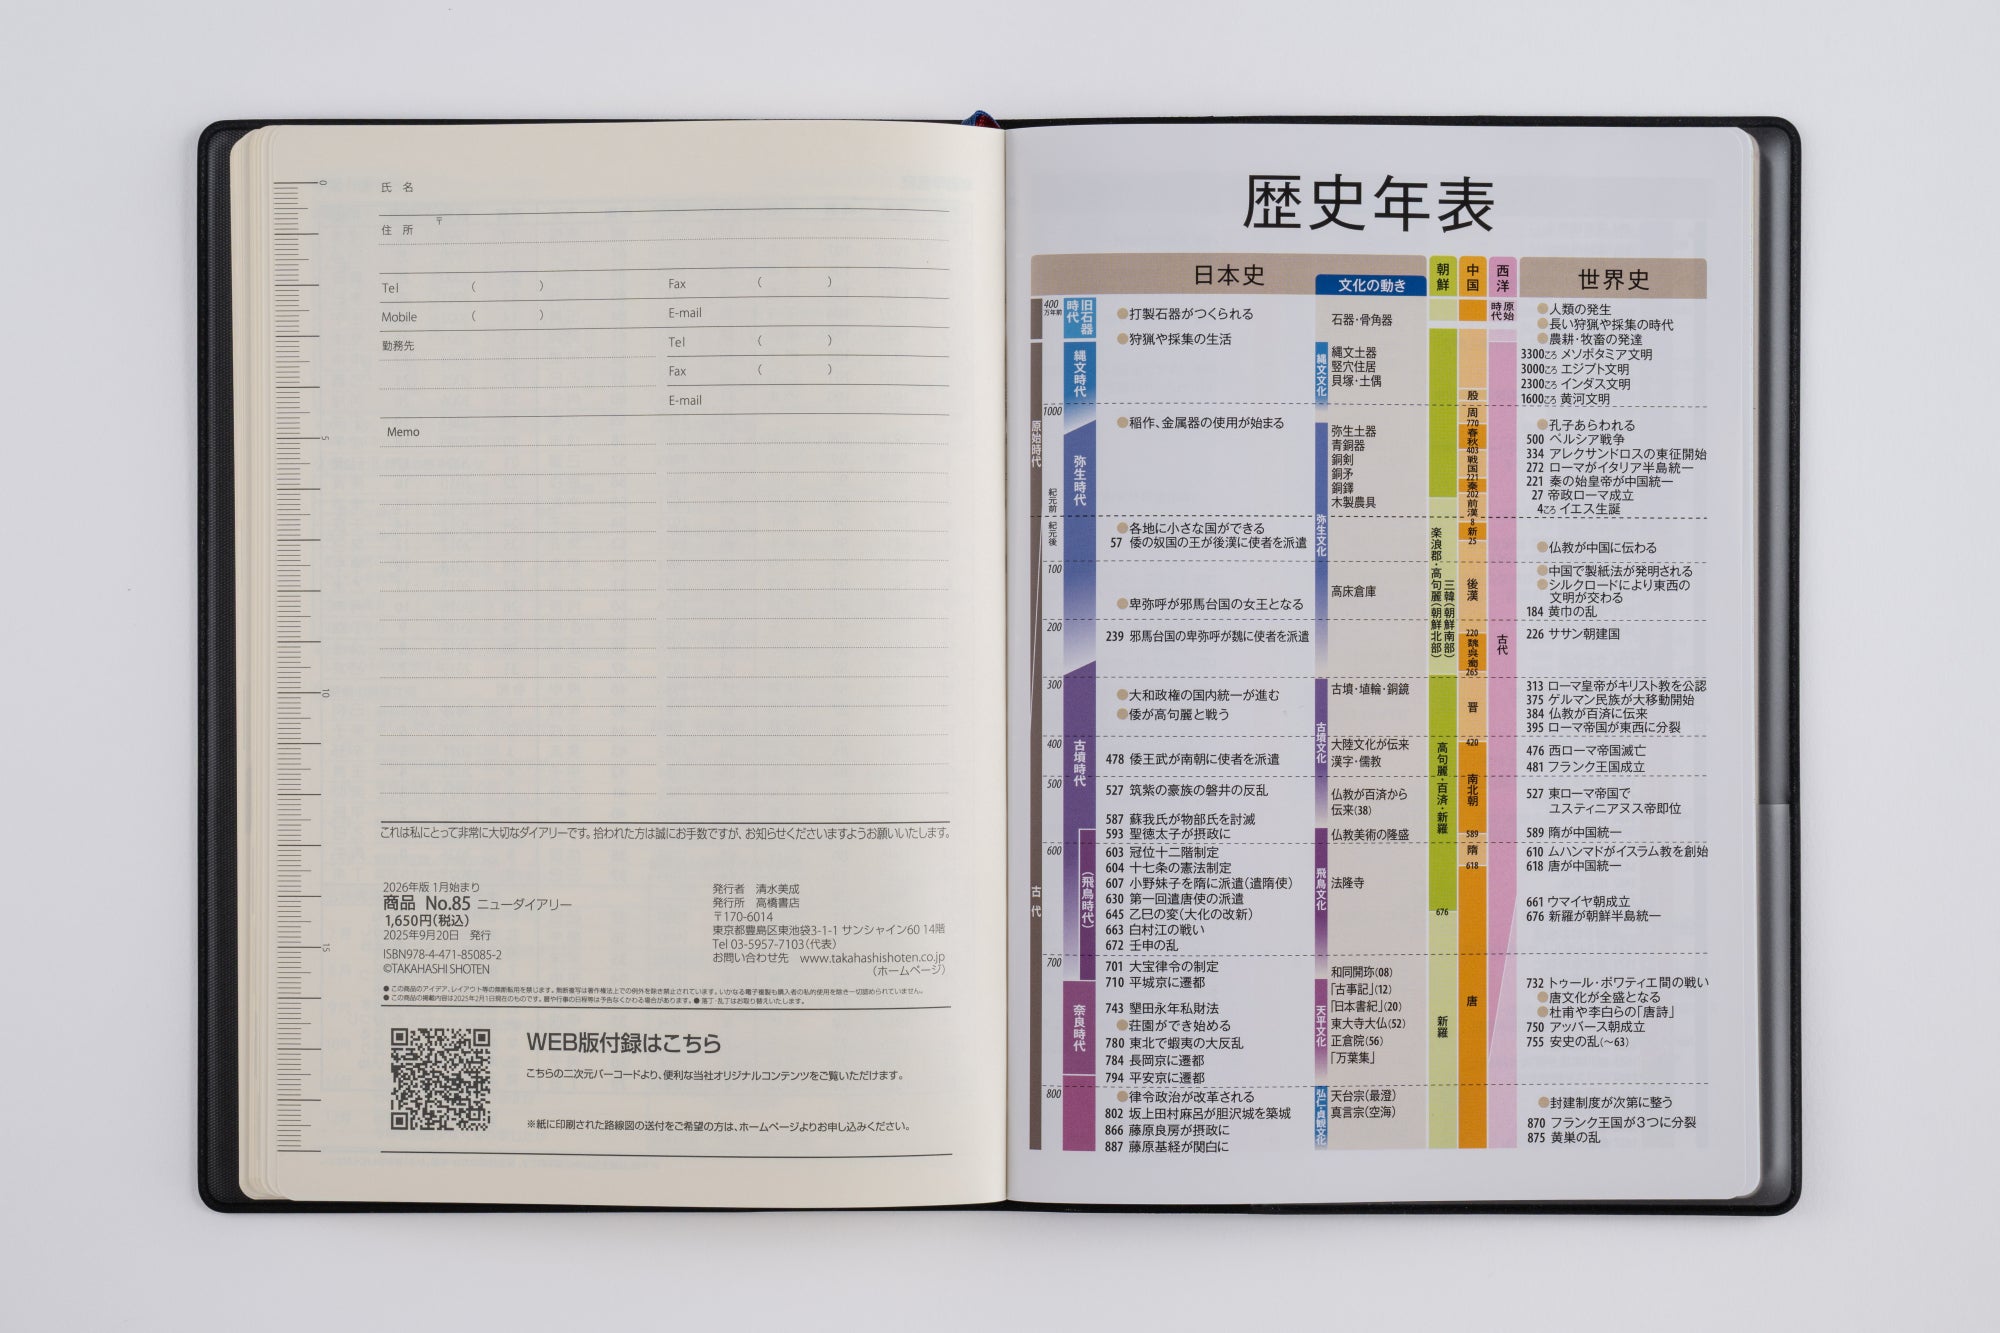 氏 名
〒
住 所
Tel ( ) Fax ( )
Mobile ( ) E-mail
勤務先 Tel ( )
Fax ( )
E-mail
Memo
0
5
10
15
これは私にとって非常に大切なダイアリーです。拾われた方は誠にお手数ですが、お知らせくださいますようお願いいたします。
2026年版 1月始まり
商品 No.85 ニューダイアリー
1,650円(税込)
2025年9月20日 発行
ISBN978-4-471-85085-2
©TAKAHASHI SHOTEN
発行者 清水美成
発行所 高橋書店
〒170-6014
東京都豊島区東池袋3-1-1 サンシャイン60 14階
Tel 03-5957-7103(代表)
お問い合わせ先 www.takahashishoten.co.jp
(ホームページ)
●この商品のアイデア、レイアウト等の無断転用を禁じます。無断複写は著作権法上での例外を除き禁止されています。いかなる電子複製も購入者の私的使用を除き一切認められていません。
●この商品の掲載内容は2025年2月1日現在のものです。暦や行事の日程等は予告なくかわる場合があります。●落丁・乱丁はお取り替えいたします。
WEB版付録はこちら
こちらの二次元バーコードより、便利な当社オリジナルコンテンツをご覧いただけます。
※紙に印刷された路線図の送付をご希望の方は、ホームページよりお申し込みください。
歴史年表
日本史
文化の動き
朝鮮
中国
西洋
世界史
400万年前
1000
紀元前
紀元後
100
200
300
400
500
600
700
800
原始時代
古代
旧石器時代
縄文時代
弥生時代
古墳時代
(飛鳥時代)
奈良時代
●打製石器がつくられる
●狩猟や採集の生活
●稲作、金属器の使用が始まる
●各地に小さな国ができる
57 倭の奴国の王が後漢に使者を派遣
●卑弥呼が邪馬台国の女王となる
239 邪馬台国の卑弥呼が魏に使者を派遣
●大和政権の国内統一が進む
●倭が高句麗と戦う
478 倭王武が南朝に使者を派遣
527 筑紫の豪族の磐井の反乱
587 蘇我氏が物部氏を討滅
593 聖徳太子が摂政に
603 冠位十二階制定
604 十七条の憲法制定
607 小野妹子を隋に派遣(遣隋使)
630 第一回遣唐使の派遣
645 乙巳の変(大化の改新)
663 白村江の戦い
672 壬申の乱
701 大宝律令の制定
710 平城京に遷都
743 墾田永年私財法
●荘園ができ始める
780 東北で蝦夷の大反乱
784 長岡京に遷都
794 平安京に遷都
●律令政治が改革される
802 坂上田村麻呂が胆沢城を築城
866 藤原良房が摂政に
887 藤原基経が関白に
縄文文化
弥生文化
古墳文化
飛鳥文化
天平文化
弘仁・貞観文化
石器・骨角器
縄文土器
竪穴住居
貝塚・土偶
弥生土器
青銅器
銅剣
銅矛
銅鐸
木製農具
高床倉庫
古墳・埴輪・銅鏡
大陸文化が伝来
漢字・儒教
仏教が百済から
伝来(38)
仏教美術の隆盛
法隆寺
和同開珎(08)
「古事記」(12)
「日本書紀」(20)
東大寺大仏(52)
正倉院(56)
「万葉集」
天台宗(最澄)
真言宗(空海)
楽浪郡・高句麗(朝鮮北部)
三韓(朝鮮南部)
高句麗・百済・新羅
676
新羅
殷
周
770
春秋
403
戦国
221
秦
202
前漢
8
新
25
後漢
220
魏・呉・蜀
265
晋
420
南北朝
589
隋
618
唐
原始時代
古代
●人類の発生
●長い狩猟や採集の時代
●農耕・牧畜の発達
3300ころ メソポタミア文明
3000ころ エジプト文明
2300ころ インダス文明
1600ころ 黄河文明
●孔子あらわれる
500 ペルシア戦争
334 アレクサンドロスの東征開始
272 ローマがイタリア半島統一
221 秦の始皇帝が中国統一
27 帝政ローマ成立
4ころ イエス生誕
●仏教が中国に伝わる
●中国で製紙法が発明される
●シルクロードにより東西の
文明が交わる
184 黄巾の乱
226 ササン朝建国
313 ローマ皇帝がキリスト教を公認
375 ゲルマン民族が大移動開始
384 仏教が百済に伝来
395 ローマ帝国が東西に分裂
476 西ローマ帝国滅亡
481 フランク王国成立
527 東ローマ帝国で
ユスティニアヌス帝即位
589 隋が中国統一
610 ムハンマドがイスラム教を創始
618 唐が中国統一
661 ウマイヤ朝成立
676 新羅が朝鮮半島統一
732 トゥール・ポワティエ間の戦い
●唐文化が全盛となる
●杜甫や李白らの「唐詩」
750 アッバース朝成立
755 安史の乱(〜63)
●封建制度が次第に整う
870 フランク王国が3つに分裂
875 黄巣の乱